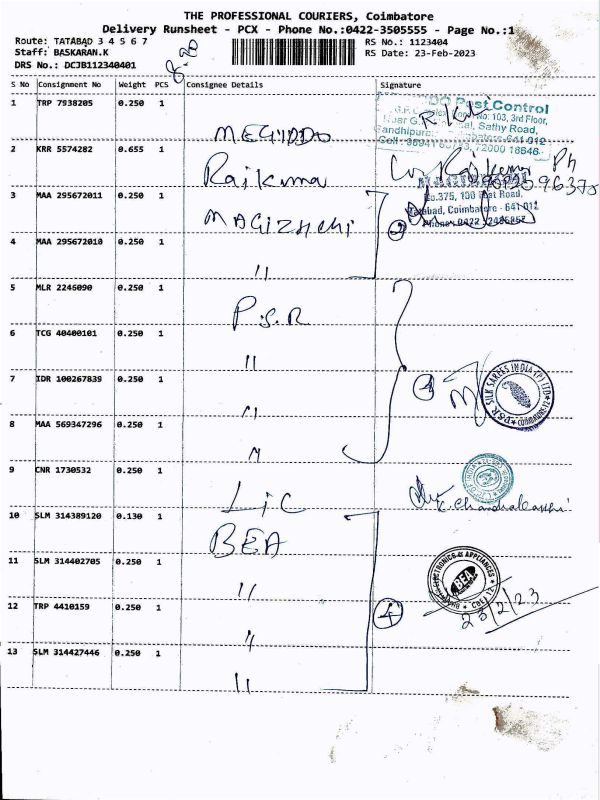 THE PROFESSIONAL COURIERS, Coimbatore
Delivery Runsheet - PCX - Phone No.:0422-3505555 - Page No.:1
Route: TATABAD 3 4 5 6 7
RS No.: 1123404
Staff: BASKARAN.K
RS Date: 23-Feb-2023
DRS No.: DCJB112340401
8.90
S No Consignment No Weight PCS Consignee Details Signature
1 TRP 7938205 0.250 1 MEGIDDO
Pest Control
No: 103, 3rd Floor,
Sathy Road,
Gandhipuram
2 KRR 5574282 0.655 1 Rajkumar
Ph
3 MAA 295672011 0.250 1 MAGIZHCHI
No.375, 100 Feet Road,
Tatabad, Coimbatore - 641 012
4 MAA 295672010 0.250 1 "
2
5 MLR 2246090 0.250 1 P.S.R
6 TCG 40400101 0.250 1 "
7 IDR 100267839 0.250 1 "
4
PSR SILK SAREES INDIA (P) LTD
COIMBATORE
8 MAA 569347296 0.250 1 "
9 CNR 1730532 0.250 1 LIC
10 SLM 314389120 0.130 1 BEA
11 SLM 314402705 0.250 1 "
ELECTRONICS & APPLIANCES
BEA
23/2/23
12 TRP 4410159 0.250 1 "
4
13 SLM 314427446 0.250 1 "